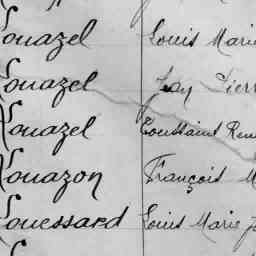 Louazel Louis Marie
Louazel Jean Pierre
Louazel Toussaint René
Louazon François M
Louessard Louis Marie J